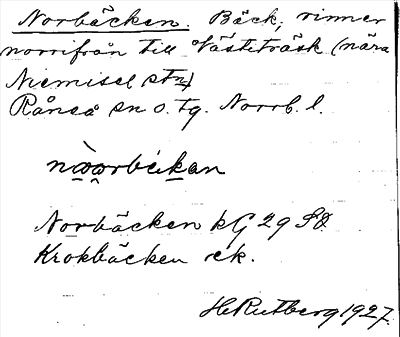 Norbäcken. Bäck, rinner
norrifrån till Västeträsk (nära
Niemisel stn)
Råneå sn o. tg. Norrb. l.
Norbäcken kG 29 SO
Krokbäcken ek.
H. Rutberg 1927.